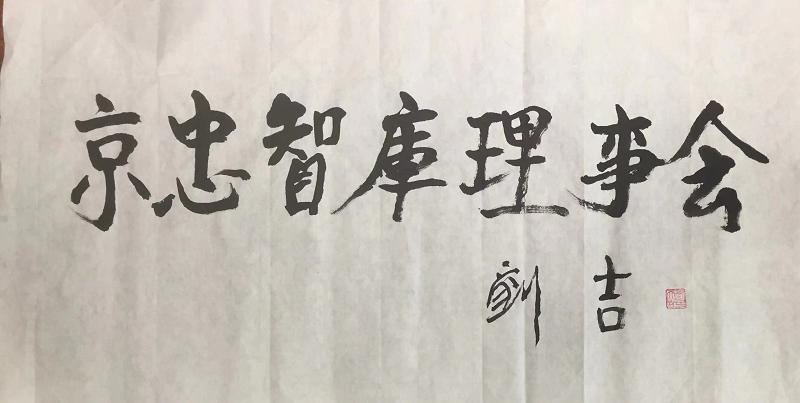 京忠智庫理事会
劉吉